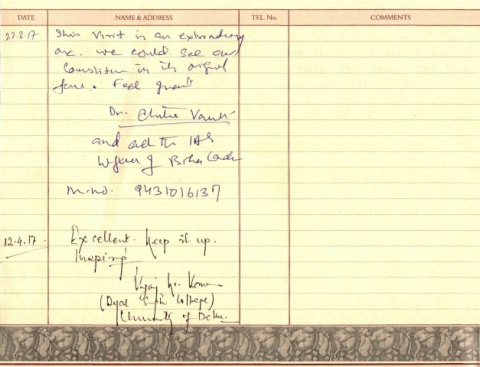 DATE NAME & ADDRESS TEL. No. COMMENTS
27.3.17 This visit is an extraordinary
one. We could see our
Constitution in its original
form. Feel great
Dr.
and all the IAS
of Bihar Cadre
M.no. 9431016137
12.4.17. Excellent. Keep it up.
Inspiring
(Dyal Singh College)
University of Delhi.